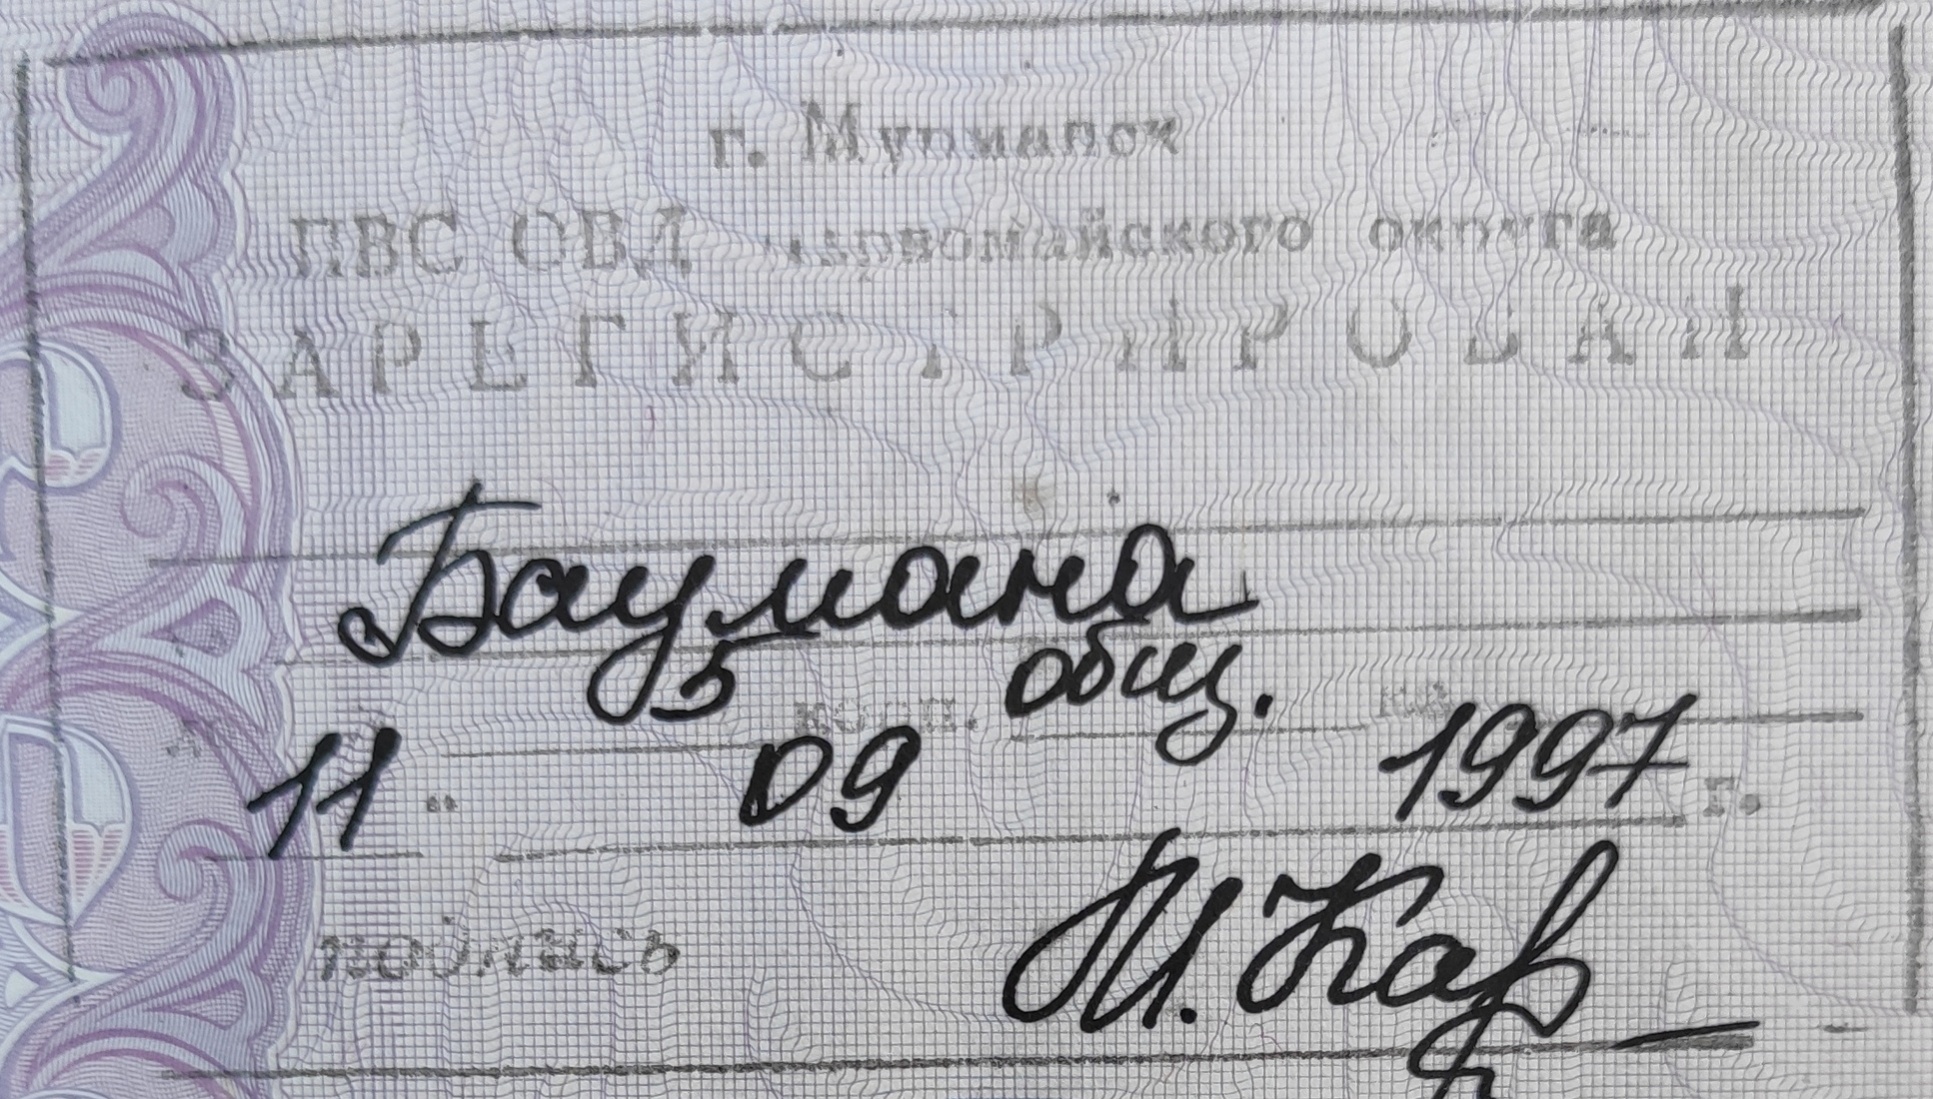 г. Мурманск
ПВС ОВД Первомайского округа
ЗАРЕГИСТРИРОВАН
Баумана
5 корп. общ. кв.
11 " 09 1997 г.
подпись И. Кар